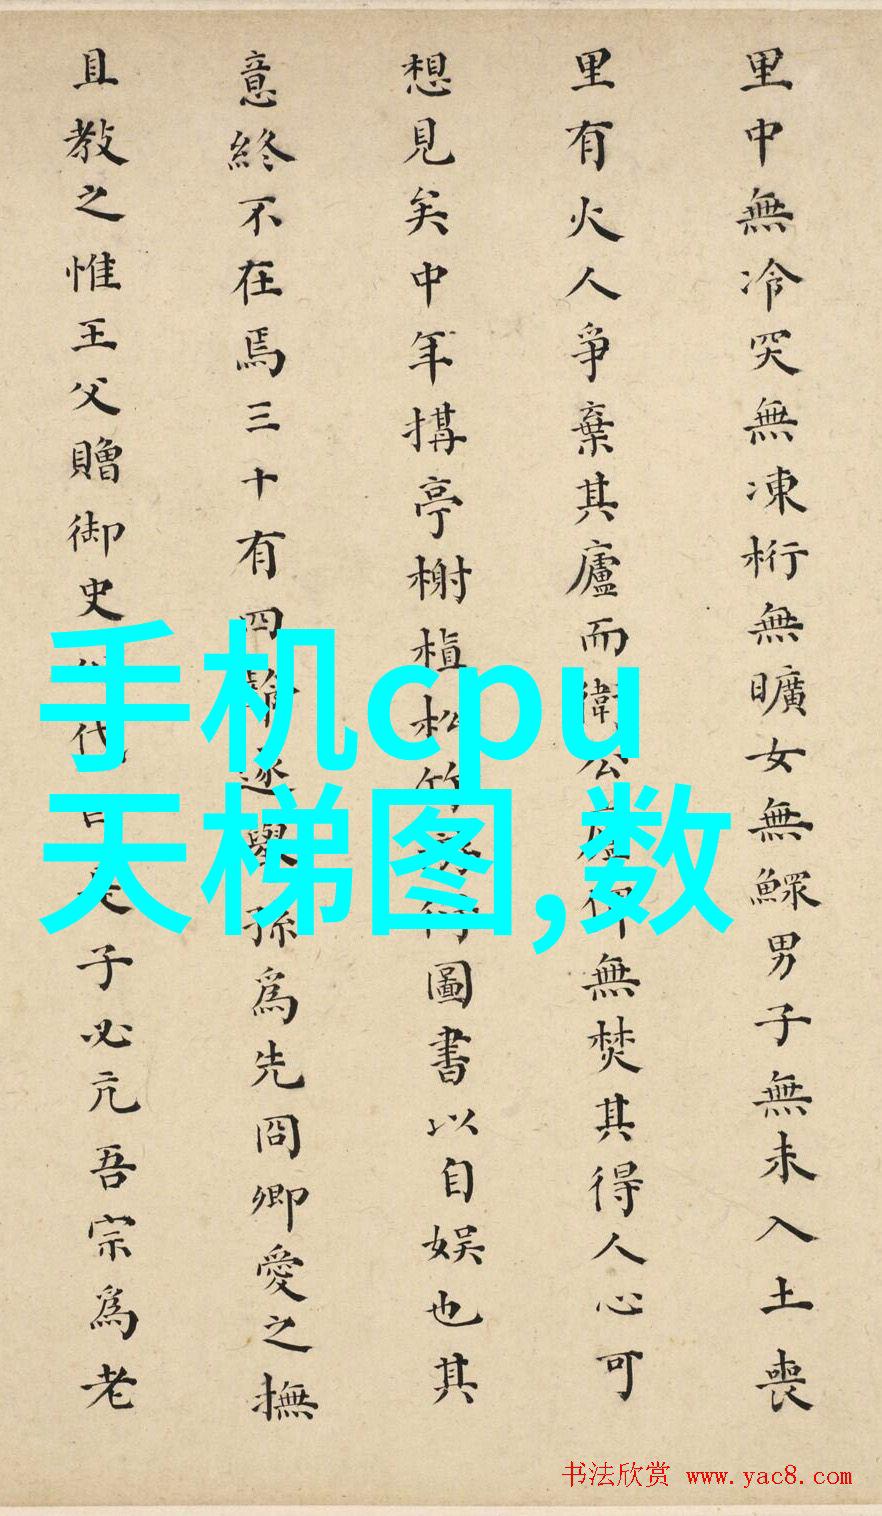 里中無冷突無凍桁無曠女無鰥男子無未入土喪
里有火人爭棄其廬而衛公廬無焚其得人心可
想見矣中年搆亭榭植松竹圖書以自娛也其
意終不在焉三十有四舉孫爲先冏卿愛之撫
且教之惟王父贈御史代是子必亢吾宗爲老
手机cpu
天梯图,数
书法欣赏 www.yac8.com